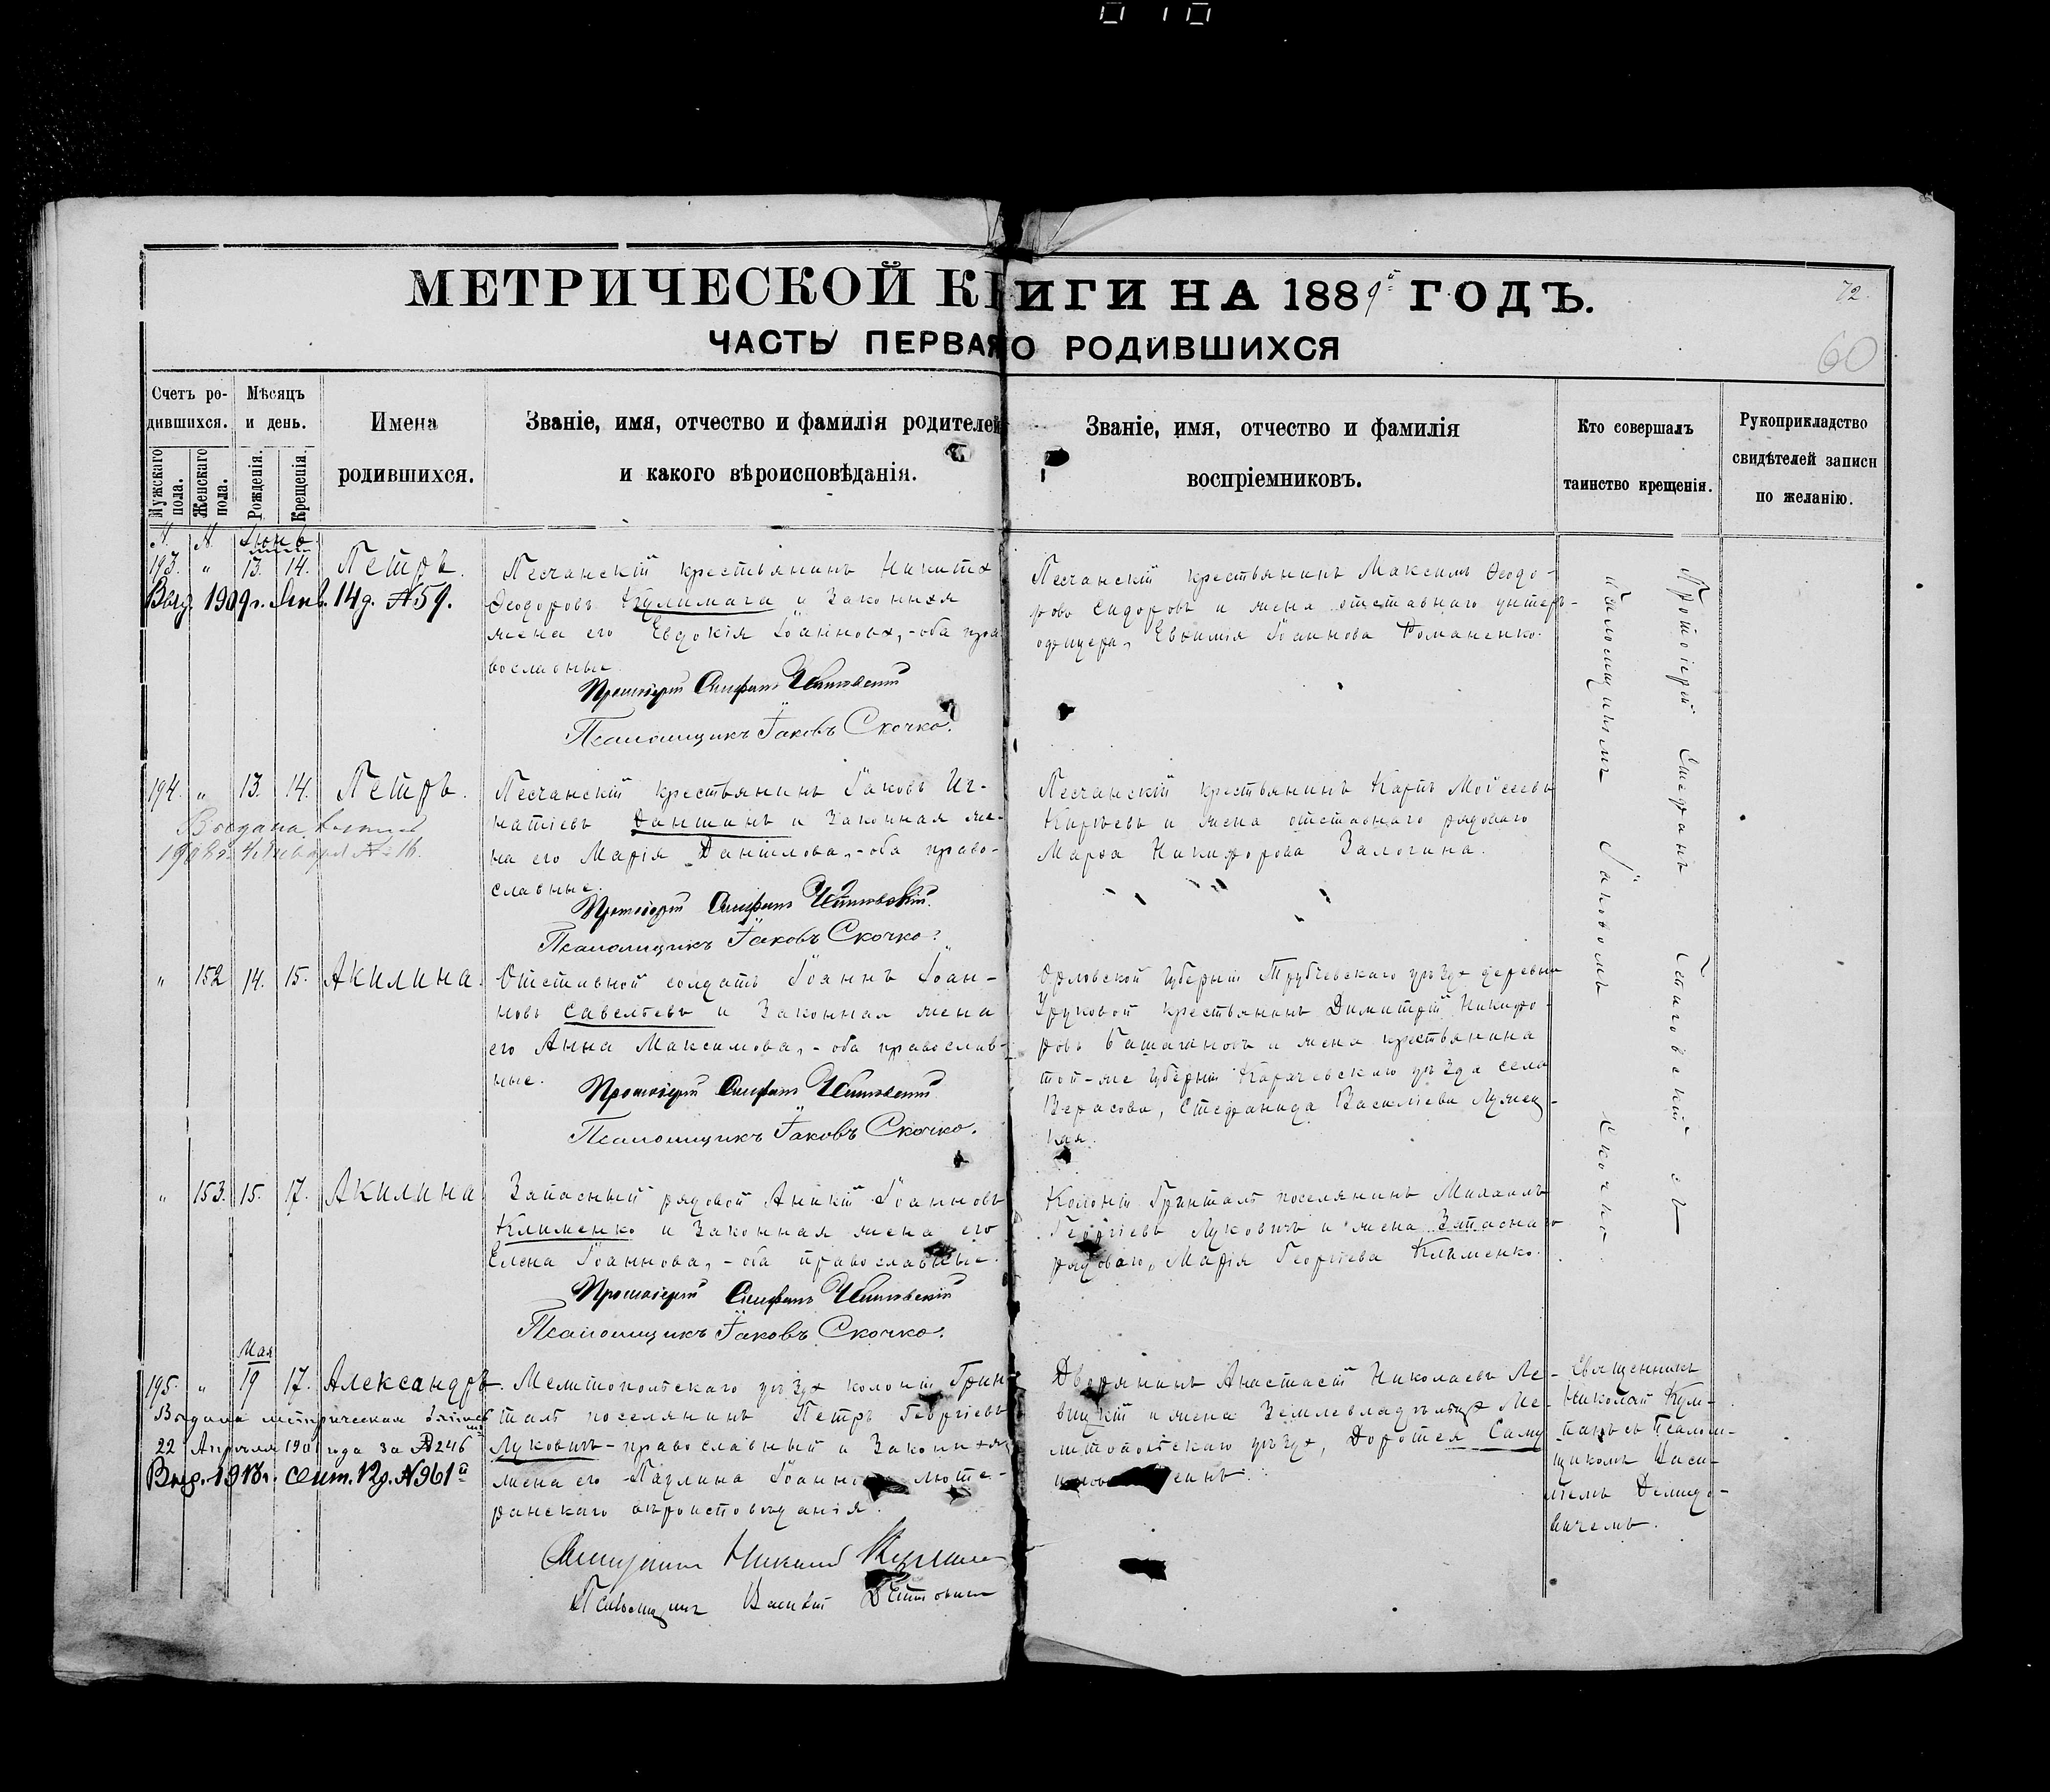 МЕТРИЧЕСКОЙ КНИГИ НА 1889й ГОДЪ.
72.
ЧАСТЬ ПЕРВАЯ О РОДИВШИХСЯ
60
Счетъ ро-
дившихся.
Мужскаго пола.
Женскаго пола.
Мѣсяцъ
и день.
Рожденія.
Крещенія.
Имена
родившихся.
Званіе, имя, отчество и фамилія родителей
и какого вѣроисповѣданія.
Званіе, имя, отчество и фамилія
воспріемниковъ.
Кто совершалъ
таинство крещенія.
Рукоприкладство
свидѣтелей записи
по желанію.
Іюнь
193. " 13. 14. Петръ.
Выд. 1909г. Янв. 14д. №59.
Песчанскій крестьянинъ Никита
Ѳеодоровъ Кулимага и законная
жена его Евдокія Іоаннова, - оба пра
вославные.
Протоіерей Стефанъ
Псаломщикъ Іаковъ Скочко.
Песчанскій крестьянинъ Максимъ Ѳеодо-
ровъ Сидоровъ и жена отставнаго унтеръ-
офицера, Евфимія Іоаннова Романенко.
Протоіерей Стефанъ съ
Псаломщикомъ Іаковомъ Скочко.
194. " 13. 14. Петръ.
Выдана
1908г. 4 Января № 16.
Песчанскій крестьянинъ Іаковъ Иг-
натіевъ Ваншинъ и законная же-
на его Марія Даніилова, - оба право-
славные.
Протоіерей Стефанъ
Псаломщикъ Іаковъ Скочко.
Песчанскій крестьянинъ Карпъ Моѵсеевъ
Кирѣевъ и жена отставнаго рядоваго
Марѳа Никифорова Залогина.
" 152 14. 15. Акилина.
Отставной солдатъ Іоаннъ Іоан-
новъ Савельевъ и законная жена
его Анна Максимова, - оба православ-
ные.
Протоіерей Стефанъ
Псаломщикъ Іаковъ Скочко.
Орловской губерніи Трубчевскаго уѣзда деревни
крестьянинъ Димитрій Никифо-
ровъ и жена крестьянина
той-же губерніи Карачевскаго уѣзда села
Верасова, Стефанида Василіева
кая.
" 153. 15. 17. Акилина
Запасный рядовой Аникій Іоанновъ
Клименко и законная жена его
Елена Іоаннова, - оба православные.
Протоіерей Стефанъ
Псаломщикъ Іаковъ Скочко.
Колоніи Гринталь поселянинъ Михаилъ
Георгіевъ Луковичъ и жена запаснаго
рядоваго, Марія Георгіева Клименко.
Мая
195. " 19 17. Александръ.
Выдана метрическая
22 Апрѣля 1901 года за №246
Выд. 1913г. Сент. 12д. №961й
Мелитопольскаго уѣзда колоніи Грин-
таль поселянинъ Петръ Георгіевъ
Луковичъ - православный и законная
жена его Паулина Іоаннова люте-
ранскаго вѣроисповѣданія.
Псаломщикъ Василій
Дворянинъ Анастасій Николаевъ Ле-
вицкій и жена землевладѣльца Ме-
литопольскаго уѣзда, Доротея Саму
Священникъ
Николай Кул-
Псалом-
щикомъ Васи-
ліемъ Демидо-
вичемъ.